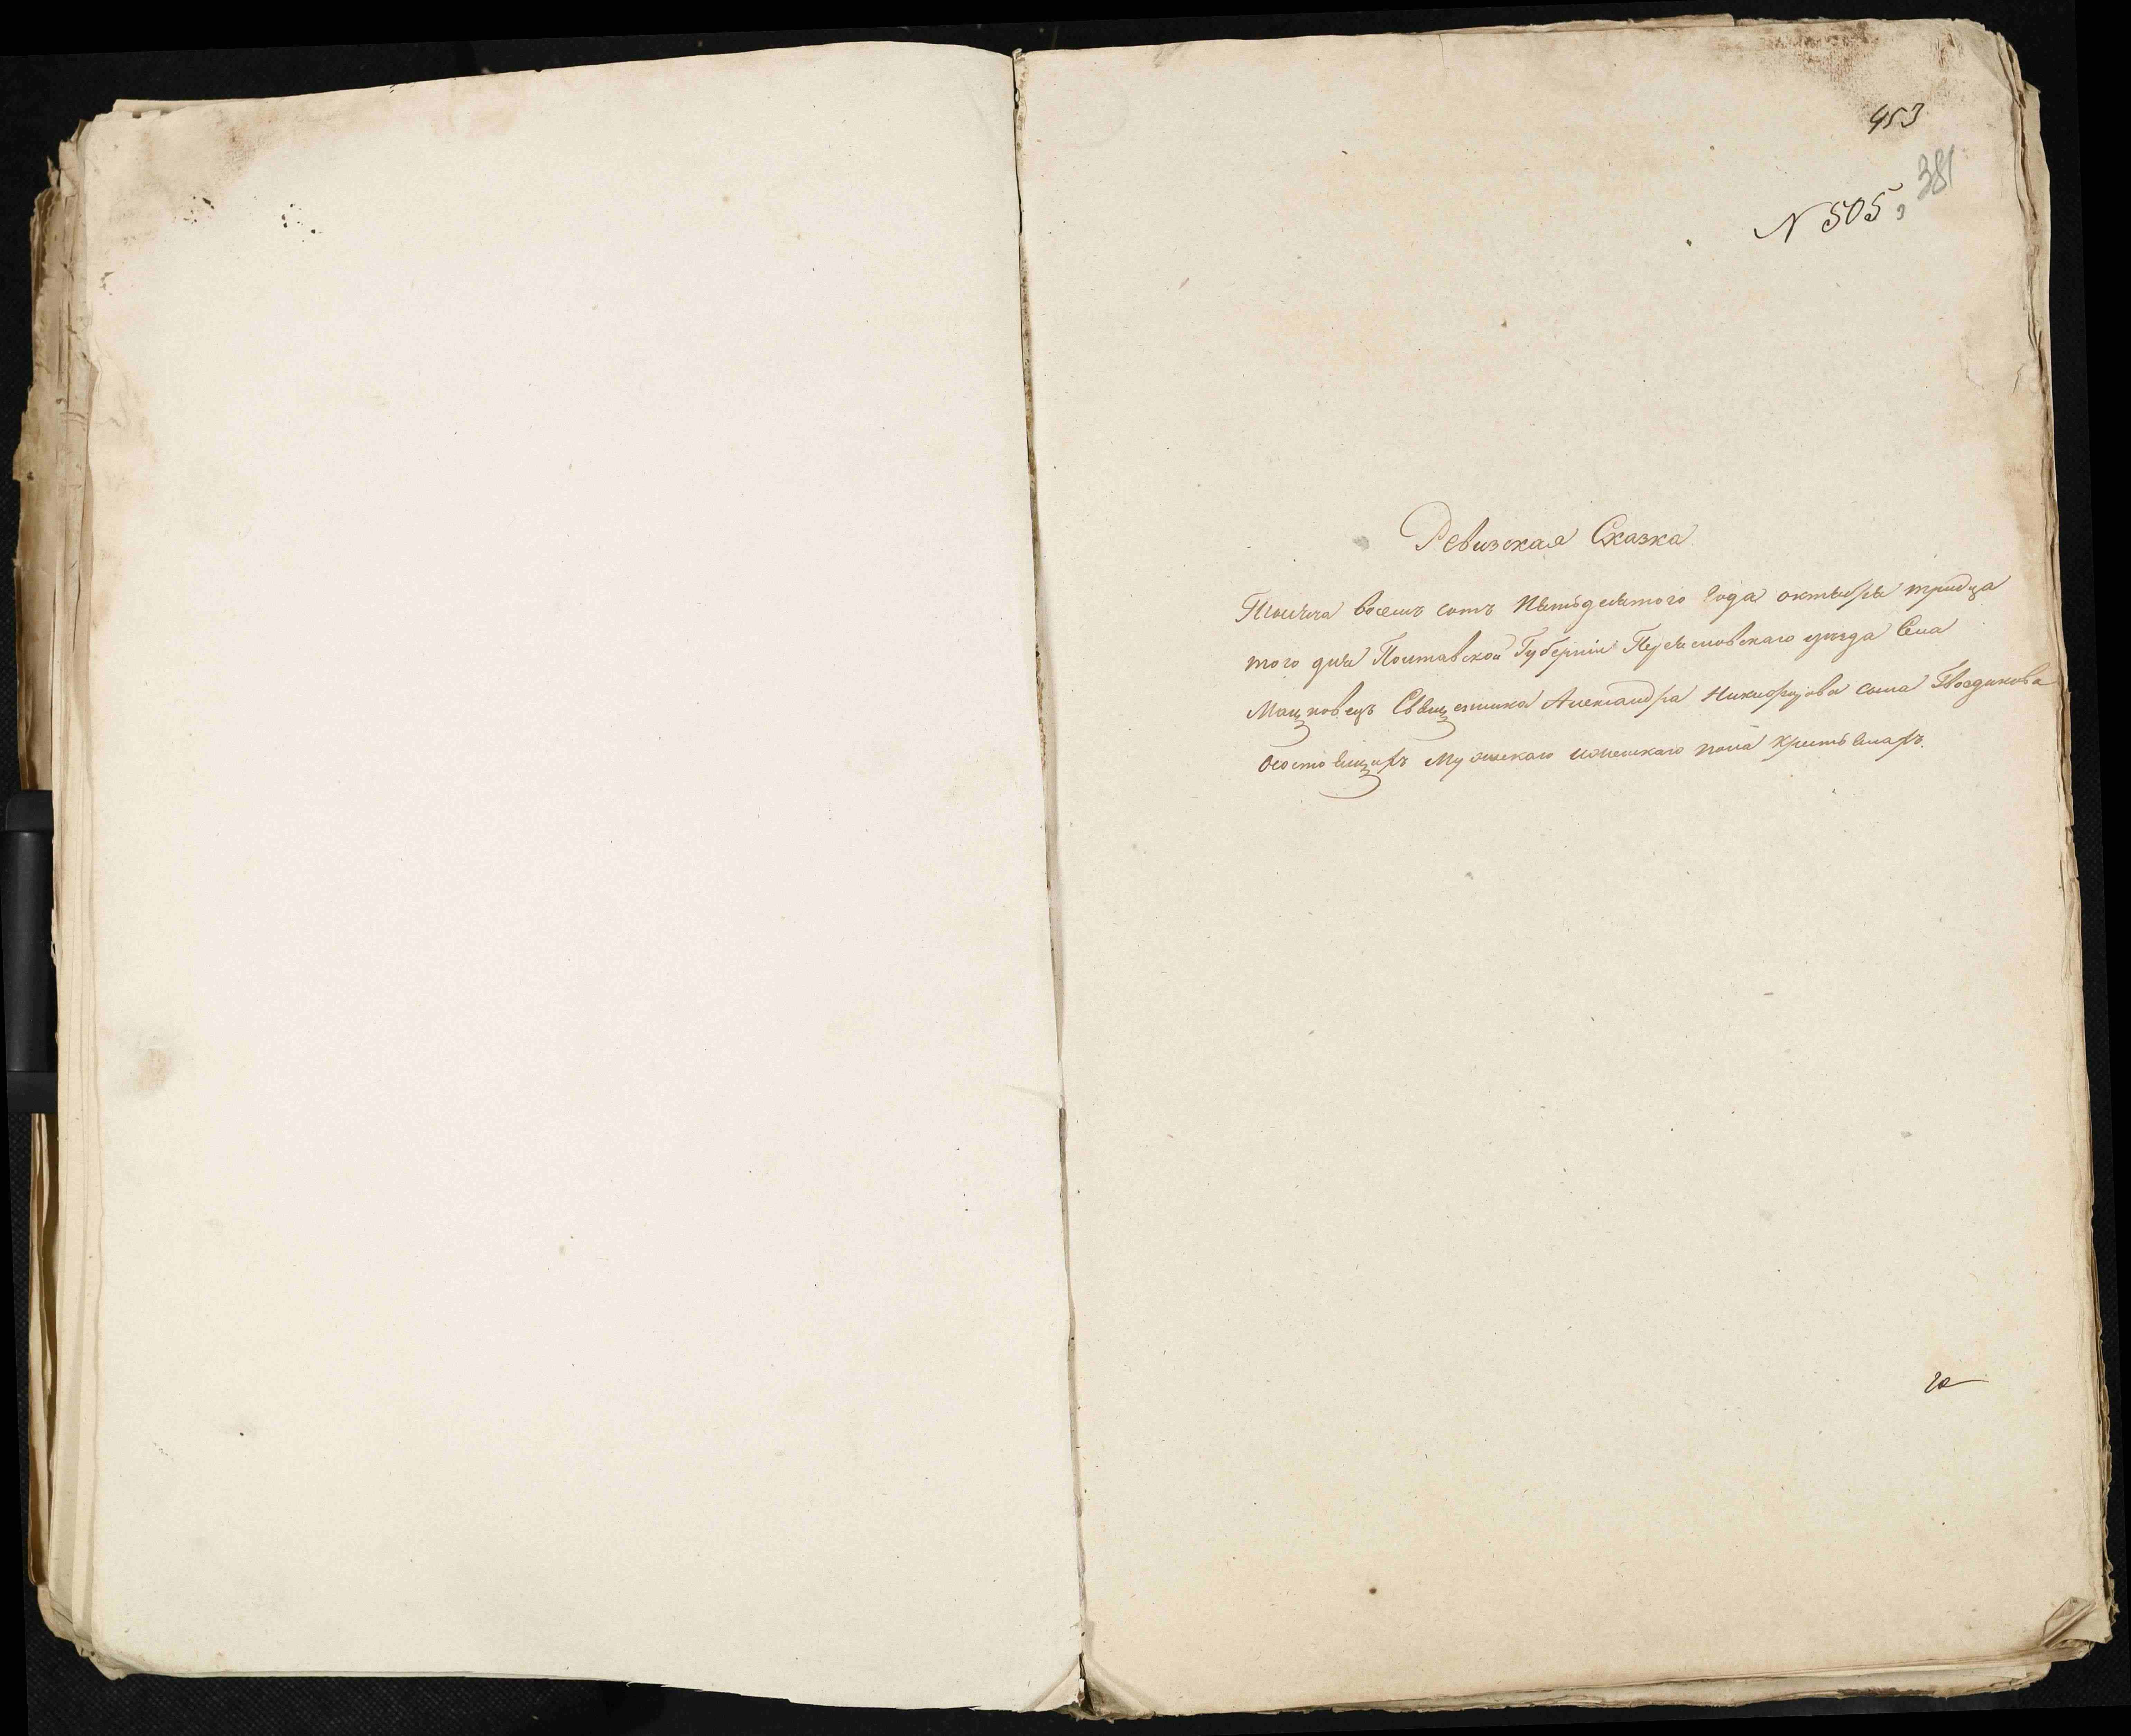 453
381
N 505,
Ревизская Сказка
Тысяча восемъ сотъ Пятьдесятого Года октября тридца
того дня Полтавской Губерніи Переясловскаго уезда Села
Мацковецъ Священника Александра Никифорова сына Гвоздикова
осостоящихъ Мужескаго иженскаго пола крестьянахъ.